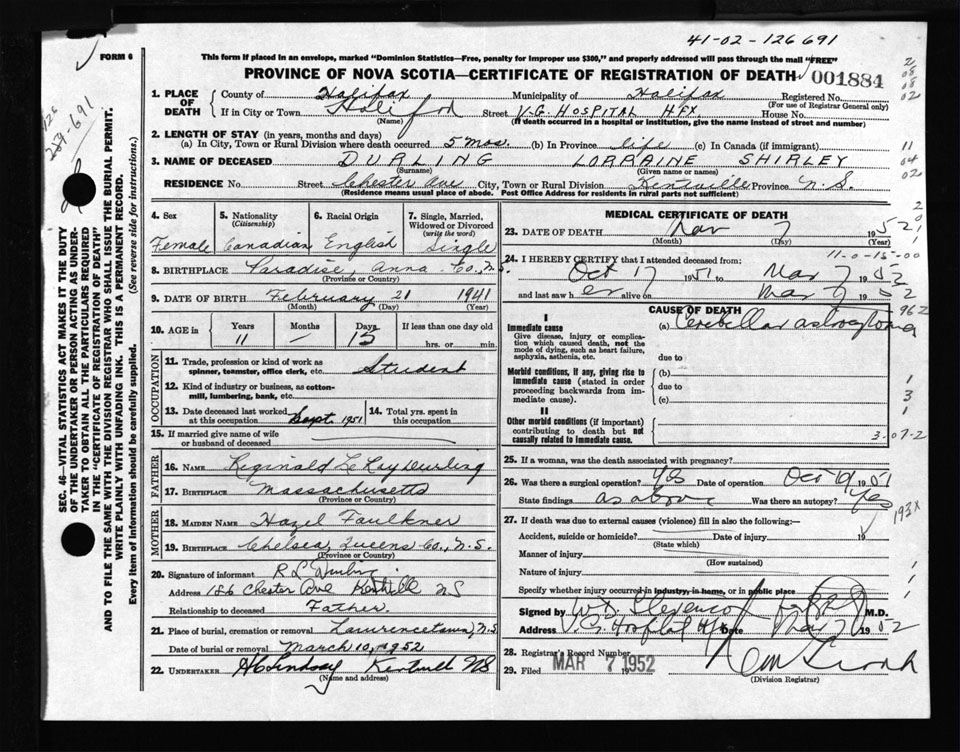 41-02-126691
FORM 6
This form if placed in an envelope, marked "Dominion Statistics—Free, penalty for improper use $300," and properly addressed will pass through the mail "FREE"
PROVINCE OF NOVA SCOTIA—CERTIFICATE OF REGISTRATION OF DEATH
001884
1. PLACE OF DEATH
County of Halifax Municipality of Halifax Registered No.
(For use of Registrar General only)
If in City or Town Street V.G HOSPITAL HFX. House No.
(Name) (If death occurred in a hospital or institution, give the name instead of street and number)
2. LENGTH OF STAY (in years, months and days)
(a) In City, Town or Rural Division where death occurred 5 mos. (b) In Province life (c) In Canada (if immigrant)
3. NAME OF DECEASED DURLING LORRAINE SHIRLEY
(Surname) (Given name or names)
RESIDENCE No. Street Chester Ave City, Town or Rural Division Kentville Province N.S.
(Residence means usual place of abode. Post Office Address for residents in rural parts not sufficient)
4. Sex Female
5. Nationality (Citizenship) Canadian
6. Racial Origin English
7. Single, Married, Widowed or Divorced (write the word) Single
8. BIRTHPLACE Paradise, Anna. Co., N.S.
(Province or Country)
9. DATE OF BIRTH February 21 1941
(Month) (Day) (Year)
10. AGE in Years Months Days If less than one day old
11 — 15 hrs. or min.
OCCUPATION
11. Trade, profession or kind of work as spinner, teamster, office clerk, etc. Student
12. Kind of industry or business, as cotton-mill, lumbering, bank, etc.
13. Date deceased last worked at this occupation Sept. 1951
14. Total yrs. spent in this occupation
15. If married give name of wife or husband of deceased
FATHER
16. NAME Reginald LeRoy Durling
17. BIRTHPLACE Massachusetts
(Province or Country)
MOTHER
18. MAIDEN NAME Hazel Faulkner
19. BIRTHPLACE Chelsea, Queens Co., N.S.
(Province or Country)
20. Signature of informant R L Durling
Address 186 Chester Ave Kentville NS
Relationship to deceased Father
21. Place of burial, cremation or removal Lawrencetown, N.S.
Date of burial or removal March 10, 1952
22. UNDERTAKER Lindsay Kentville NS
(Name and address)
MEDICAL CERTIFICATE OF DEATH
23. DATE OF DEATH Mar 7 1952
(Month) (Day) (Year)
24. I HEREBY CERTIFY that I attended deceased from:
11-0-15-00
Oct 17 1951 to Mar 7 1952
and last saw her alive on Mar 7 1952
CAUSE OF DEATH
I
Immediate cause (a) Cerebellar astrocytoma
Give disease, injury or complication which caused death, not the mode of dying, such as heart failure, asphyxia, asthenia, etc.
due to
Morbid conditions, if any, giving rise to immediate cause (stated in order proceeding backwards from immediate cause)
(b)
due to
(c)
II
Other morbid conditions (if important) contributing to death but not causally related to immediate cause.
3-07-2
25. If a woman, was the death associated with pregnancy?
26. Was there a surgical operation? Yes Date of operation Oct 19 1951
State findings as above Was there an autopsy? Yes
193X
27. If death was due to external causes (violence) fill in also the following:—
Accident, suicide or homicide? Date of injury 19
(State which)
Manner of injury
(How sustained)
Nature of injury
Specify whether injury occurred in industry, in home, or in public place
Signed by M.D.
Address V.G. Hospital Hfx Date Mar 7 1952
28. Registrar's Record Number
29. Filed MAR 7 1952 19
(Division Registrar)
SEC. 46—VITAL STATISTICS ACT MAKES IT THE DUTY
OF THE UNDERTAKER OR PERSON ACTING AS UNDER-
TAKER TO OBTAIN ALL THE PARTICULARS REQUIRED
IN THE "CERTIFICATE OF REGISTRATION OF DEATH"
AND TO FILE THE SAME WITH THE DIVISION REGISTRAR WHO SHALL ISSUE THE BURIAL PERMIT.
WRITE PLAINLY WITH UNFADING INK. THIS IS A PERMANENT RECORD.
Every item of information should be carefully supplied. (See reverse side for instructions.)